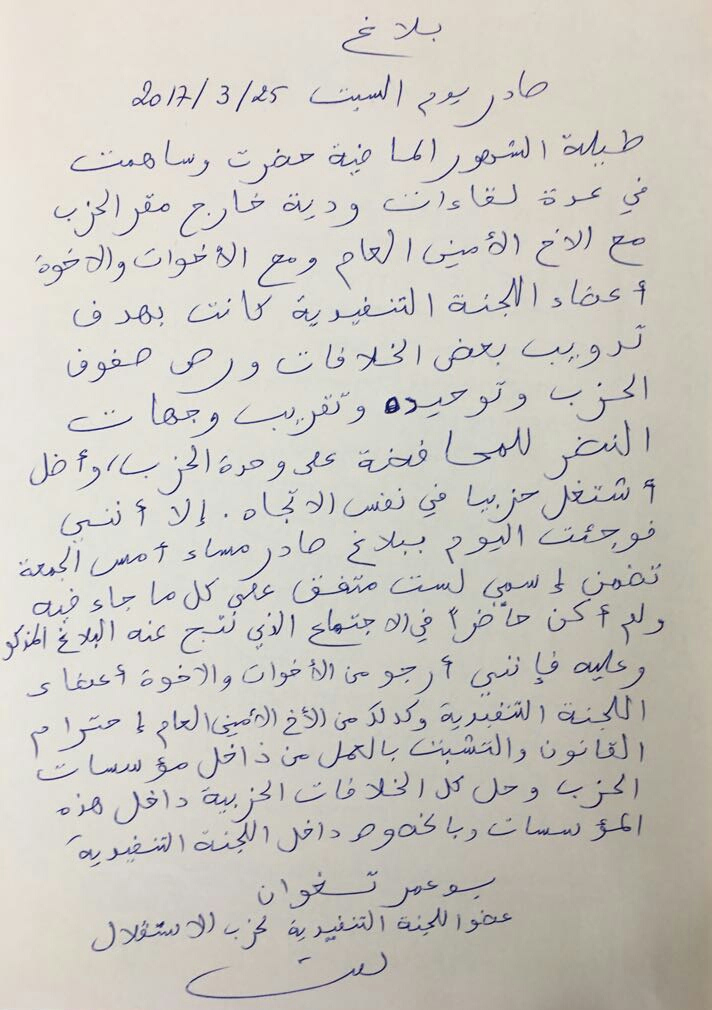 بلاغ
صادر يوم السبت 2017/3/25
طيلة الشهور الماضية حضرت وساهمت
في عدة لقاءات ودية خارج مقر الحزب
مع الاخ الأمين العام ومع الأخوات والاخوة
أعضاء اللجنة التنفيدية كانت بهدف
تدويب بعض الخلافات ورص صفوف
الحزب وتوحيده وتقريب وجهات
النضر للمحافضة على وحدة الحزب، وأضل
أشتغل حزبيا في نفس الاتجاه. إلا أنني
فوجئت اليوم ببلاغ صادر مساء أمس الجمعة
تضمن إسمي لست متفق على كل ما جاء فيه
ولم أكن حاضراً في الاجتماع الذي نتج عنه البلاغ المذكو
وعليه فإنني أرجو من الأخوات والاخوة أعضاء
اللجنة التنفيدية وكدلك من الأخ الأمين العام إحترام
القانون والتشبت بالعمل من داخل مؤسسات
الحزب وحل كل الخلافات الحزبية داخل هذه
المؤسسات وبالخصوص داخل اللجنة التنفيدية
بوعمر تغوان
عضو اللجنة التنفيدية لحزب الاستقلال